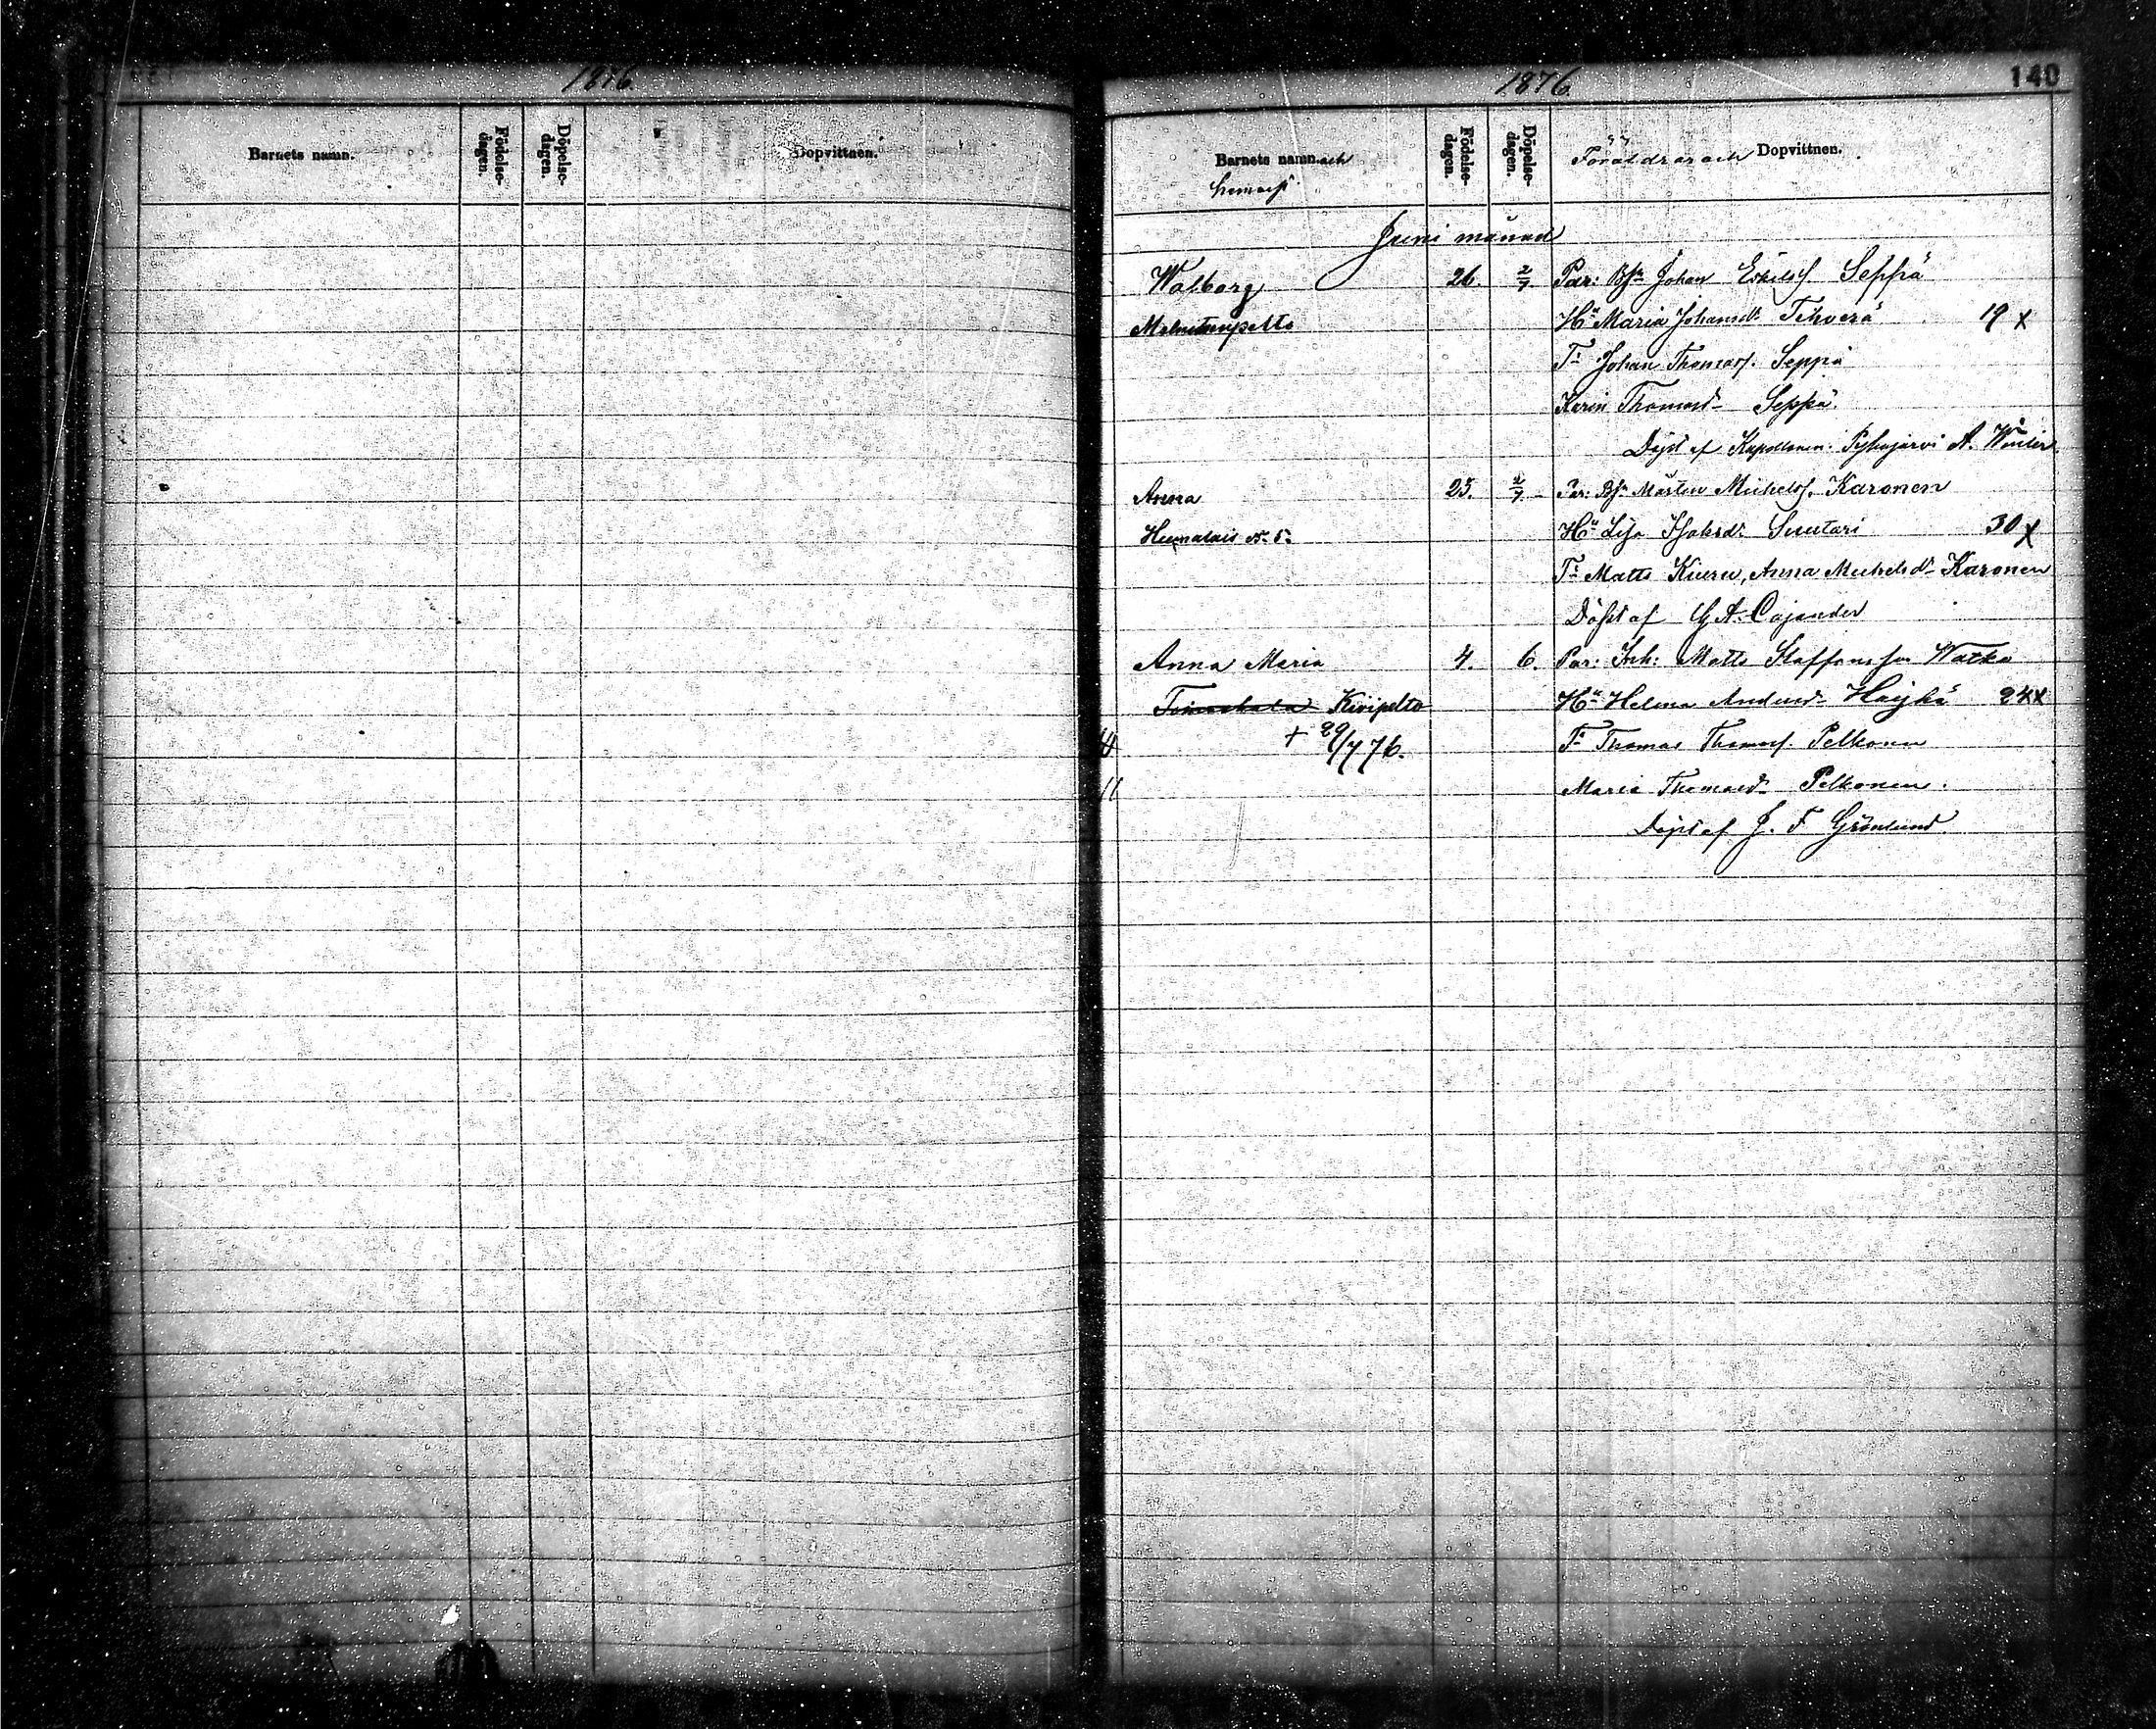 1876.
Barnets namn.
Födelse-dagen.
Döpelse-dagen.
Dopvittnen.
1876
140
Barnets namn och
hemort.
Födelse-dagen.
Döpelse-dagen.
Föräldrar och Dopvittnen.
Juni månad
Walborg 26. 2/7 Par: Bfn Johan Eskilsf. Seppä
H:u Maria Johansd:r Tihverä 19 x
T: Johan Thomasf. Seppä
Karin Thomasd:r Seppä.
Döpt af Kapellanen i Pyhäjärvi A.
Anna 25. 2/7 Par: Bfn Mårten Michelsf. Karonen
Humalais No. 5. H:u Lisa Suutari 30 x
T: Matts Kiuru, Anna Michelsd:r Karonen
Döpt af G. A. Cajander
Anna Maria 4. 6. Par: Inh: Matts Staffansson Watka
Kivipelto H:u Helena Andersd:r 24 x
+ 29/7 76. T: Thomas Thomasf. Pelkonen
Maria Thomasd:r Pelkonen.
Döpt af J. F. Grönlund